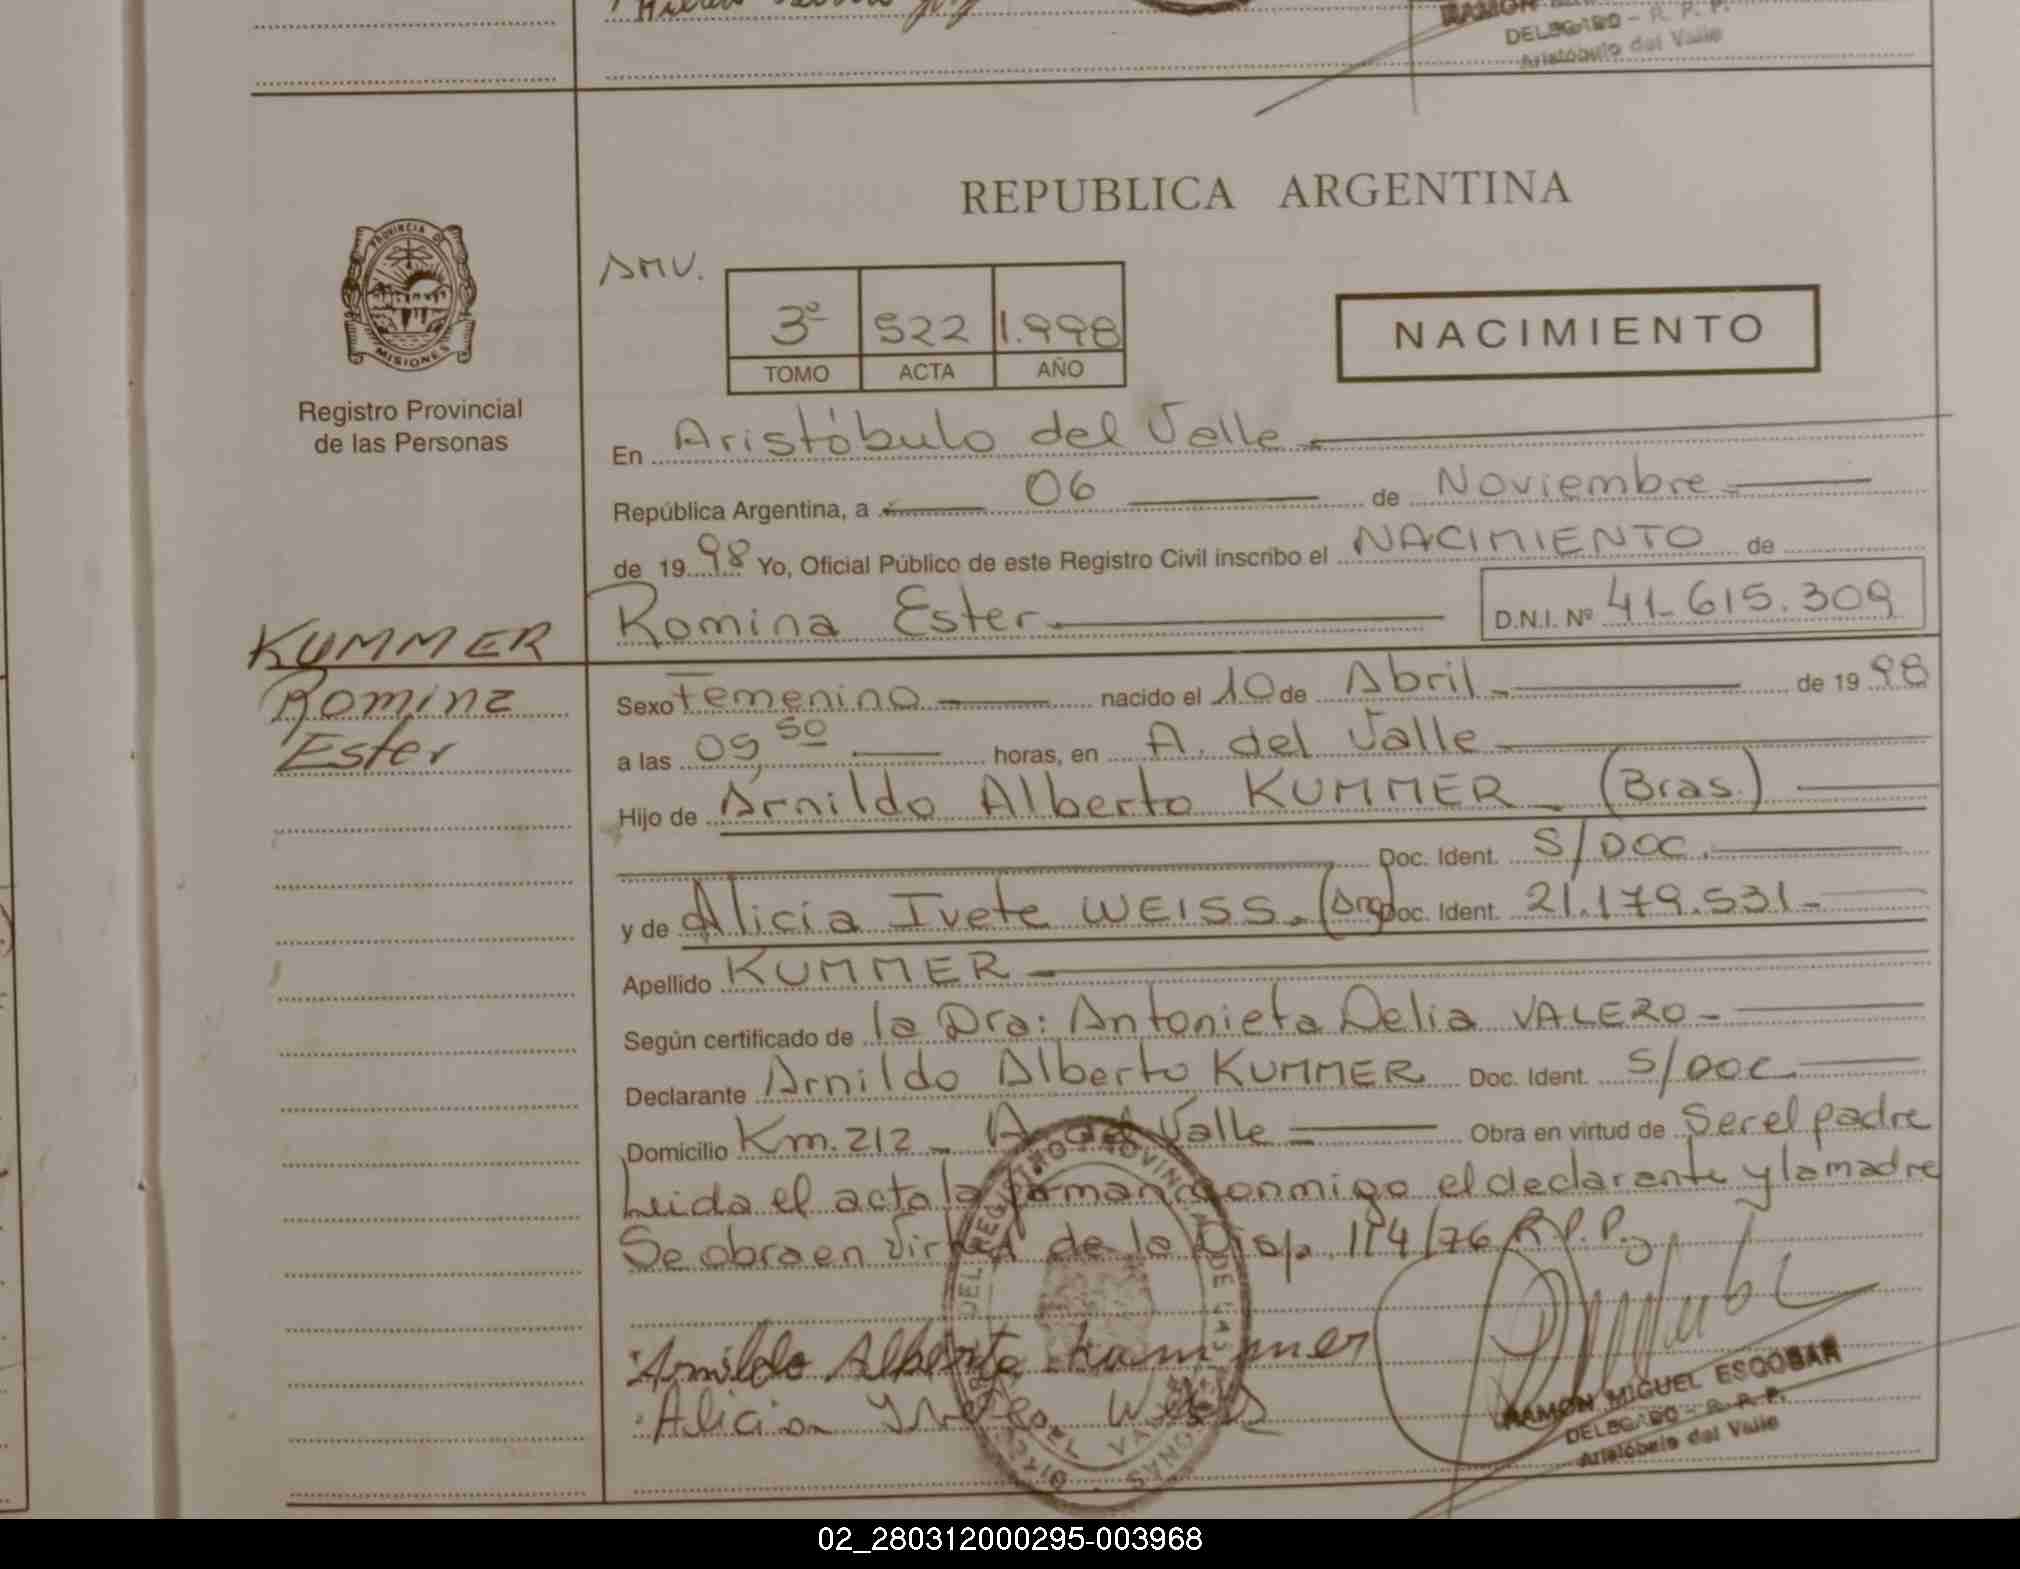 DELEGADO - R. P. P.
Aristóbulo del Valle
REPUBLICA ARGENTINA
PROVINCIA DE
MISIONES
Registro Provincial
de las Personas
AMV.
3º 522 1.998
TOMO ACTA AÑO
NACIMIENTO
En Aristóbulo del Valle
República Argentina, a 06 de Noviembre
de 1998 Yo, Oficial Público de este Registro Civil inscribo el NACIMIENTO de
Romina Ester D.N.I. Nº 41.615.309
KUMMER
Romina
Ester
Sexo Femenino nacido el 10 de Abril de 1998
a las 09,50 horas, en A. del Valle
Hijo de Arnildo Alberto KUMMER (Bras.)
Doc. Ident. S/DOC.
y de Alicia Ivete WEISS. (Arg) Doc. Ident. 21.179.531
Apellido KUMMER
Según certificado de la Dra: Antonieta Delia VALERO
Declarante Arnildo Alberto KUMMER Doc. Ident. S/DOC.
Domicilio Km. 212 - A. del Valle Obra en virtud de Ser el padre
Leida el acta la firman conmigo el declarante y la madre
Se obra en Virtud de la Disp. 114/76 R.P.P.
Arnildo Alberto Kummer
Alicia Weiss
RAMON MIGUEL ESCOBAR
DELEGADO - R. P. P.
Aristóbulo del Valle
02_280312000295-003968